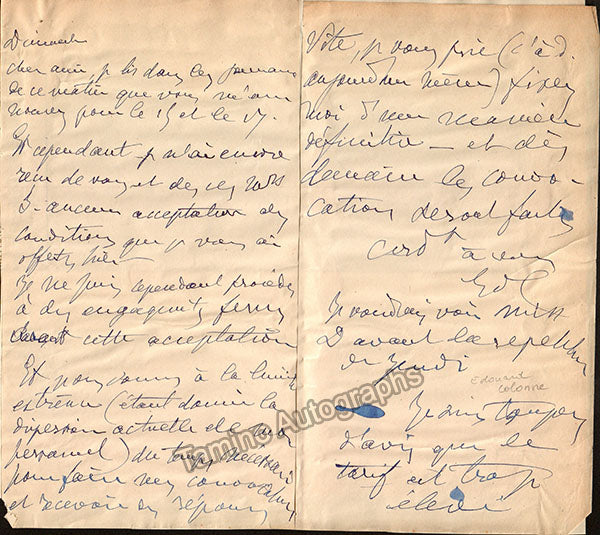 Dimanche
cher ami, je lis dans les journaux
de ce matin que vous m'an
noncez pour le 15 et le 17.
Et cependant je n'ai encore
reçu de vous et de
aucune acceptation des
conditions que je vous ai
offertes hier
Je ne puis cependant procéder
à des engagements fermes
avant cette acceptation
Et nous sommes à la limite
extrême (étant donné la
dispersion actuelle de mon
personnel) du temps nécessaire
pour faire mes convocations
et recevoir des réponses
Vite, je vous prie (c'à d.
aujourd'hui même) fixez
moi d'une manière
définitive — et dès
demain les convo-
cations seront faites
Cord^t à vous
EdC
Je voudrais voir Miss
D avant la répétition
de Jeudi
Edouard
Colonne
Je suis toujours
d'avis que le
tarif est trop
élevé
Tamino Autographs